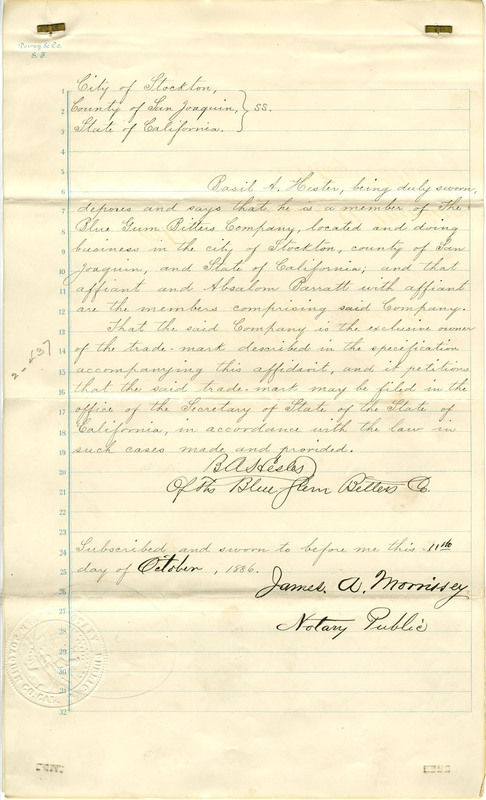 Dewey & Co.
S. F.
1 City of Stockton,
2 County of San Joaquin, } ss.
3 State of California.
4
5
6 Basil A. Hester, being duly sworn,
7 deposes and says that he is a member of The
8 Blue Gum Bitters Company, located and doing
9 business in the city of Stockton, county of San
10 Joaquin, and State of California; and that
11 affiant and Absalom Parratt with affiant
12 are the members comprising said Company.
13 That the said Company is the exclusive owner
14 of the trade-mark described in the specification
15 accompanying this affidavit, and it petitions
16 that the said trade-mark may be filed in the
17 office of the Secretary of State of the State of
18 California, in accordance with the law in
19 such cases made and provided.
20 B A Hester
21 Of the Blue Gum Bitters Co.
22
23
24 Subscribed and sworn to before me this 11th
25 day of October, 1886.
26 James. A. Morrissey
27
28 Notary Public
32